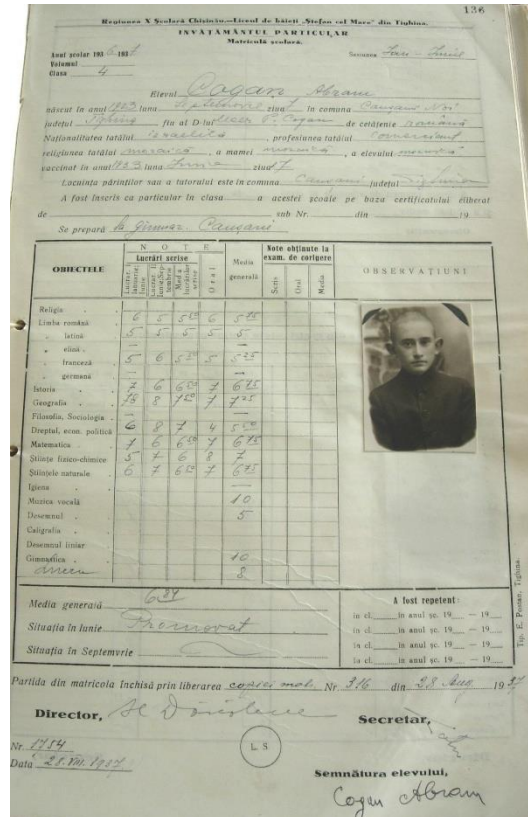 136
Regiunea X Școlară Chișinău.—Liceul de băieți „Ștefan cel Mare" din Tighina.
INVĂȚĂMÂNTUL PARTICULAR
Matricolă școlară.
Anul școlar 193 -193
Volumul
Clasa 4
Sesiunea
Elevul Cogan Abram
născut în anul 1923 luna Septembrie ziua 1 în comuna Căușani Noi
județul Tighina fiu al D-lui P. Cogan de cetățenie română
Naționalitatea tatălui israelită, profesiunea tatălui comerciant
religiunea tatălui mozaică, a mamei mozaică, a elevului mozaică
vaccinat în anul 1923 luna Iunie ziua 7
Locuința părinților sau a tutorului este în comuna Căușani județul Tighina
A fost înscris ca particular în clasa a acestei școale pe baza certificatului eliberat
de sub Nr. din 19
Se prepară la gimnaz. Căușani
OBIECTELE
NOTE
Lucrări scrise
Lucrar. I Ianuarie; Iunie
Lucrar. II Iunie; Septembrie
Media lucrărilor scrise
Oral
Media generală
Note obținute la exam. de corigere
Scris
Oral
Media
OBSERVAȚIUNI
Religia —
Limba română 6 5 5 50 6 5 75
„ latină 5 5 5 5 5
„ elină —
„ franceză 5 6 5 50 5 5 25
„ germană —
Istoria 7 6 6 50 7 6 75
Geografia 7 8 7 50 7 7 25
Filosofia, Sociologia —
Dreptul, econ. politică 6 8 7 4 5 50
Matematica 7 6 6 50 7 6 75
Științe fizico-chimice 5 7 6 8 7
Științele naturale 6 7 6 50 7 6 75
Igiena —
Muzica vocală 10
Desemnul 5
Caligrafia
Desemnul liniar
Gimnastica 10
8
Media generală 6 89
Situația în Iunie Promovat
Situația în Septemvrie
A fost repetent:
în cl. în anul șc. 19 — 19
în cl. în anul șc. 19 — 19
în cl. în anul șc. 19 — 19
în cl. în anul șc. 19 — 19
Tip. E. Ponar, Tighina.
Partida din matricola închisă prin liberarea copiei mat. Nr 316 din 28 Aug. 1937
Director,
Secretar,
Nr. 1754
L. S.
Data 28.VIII.1937
Semnătura elevului,
Cogan Abram